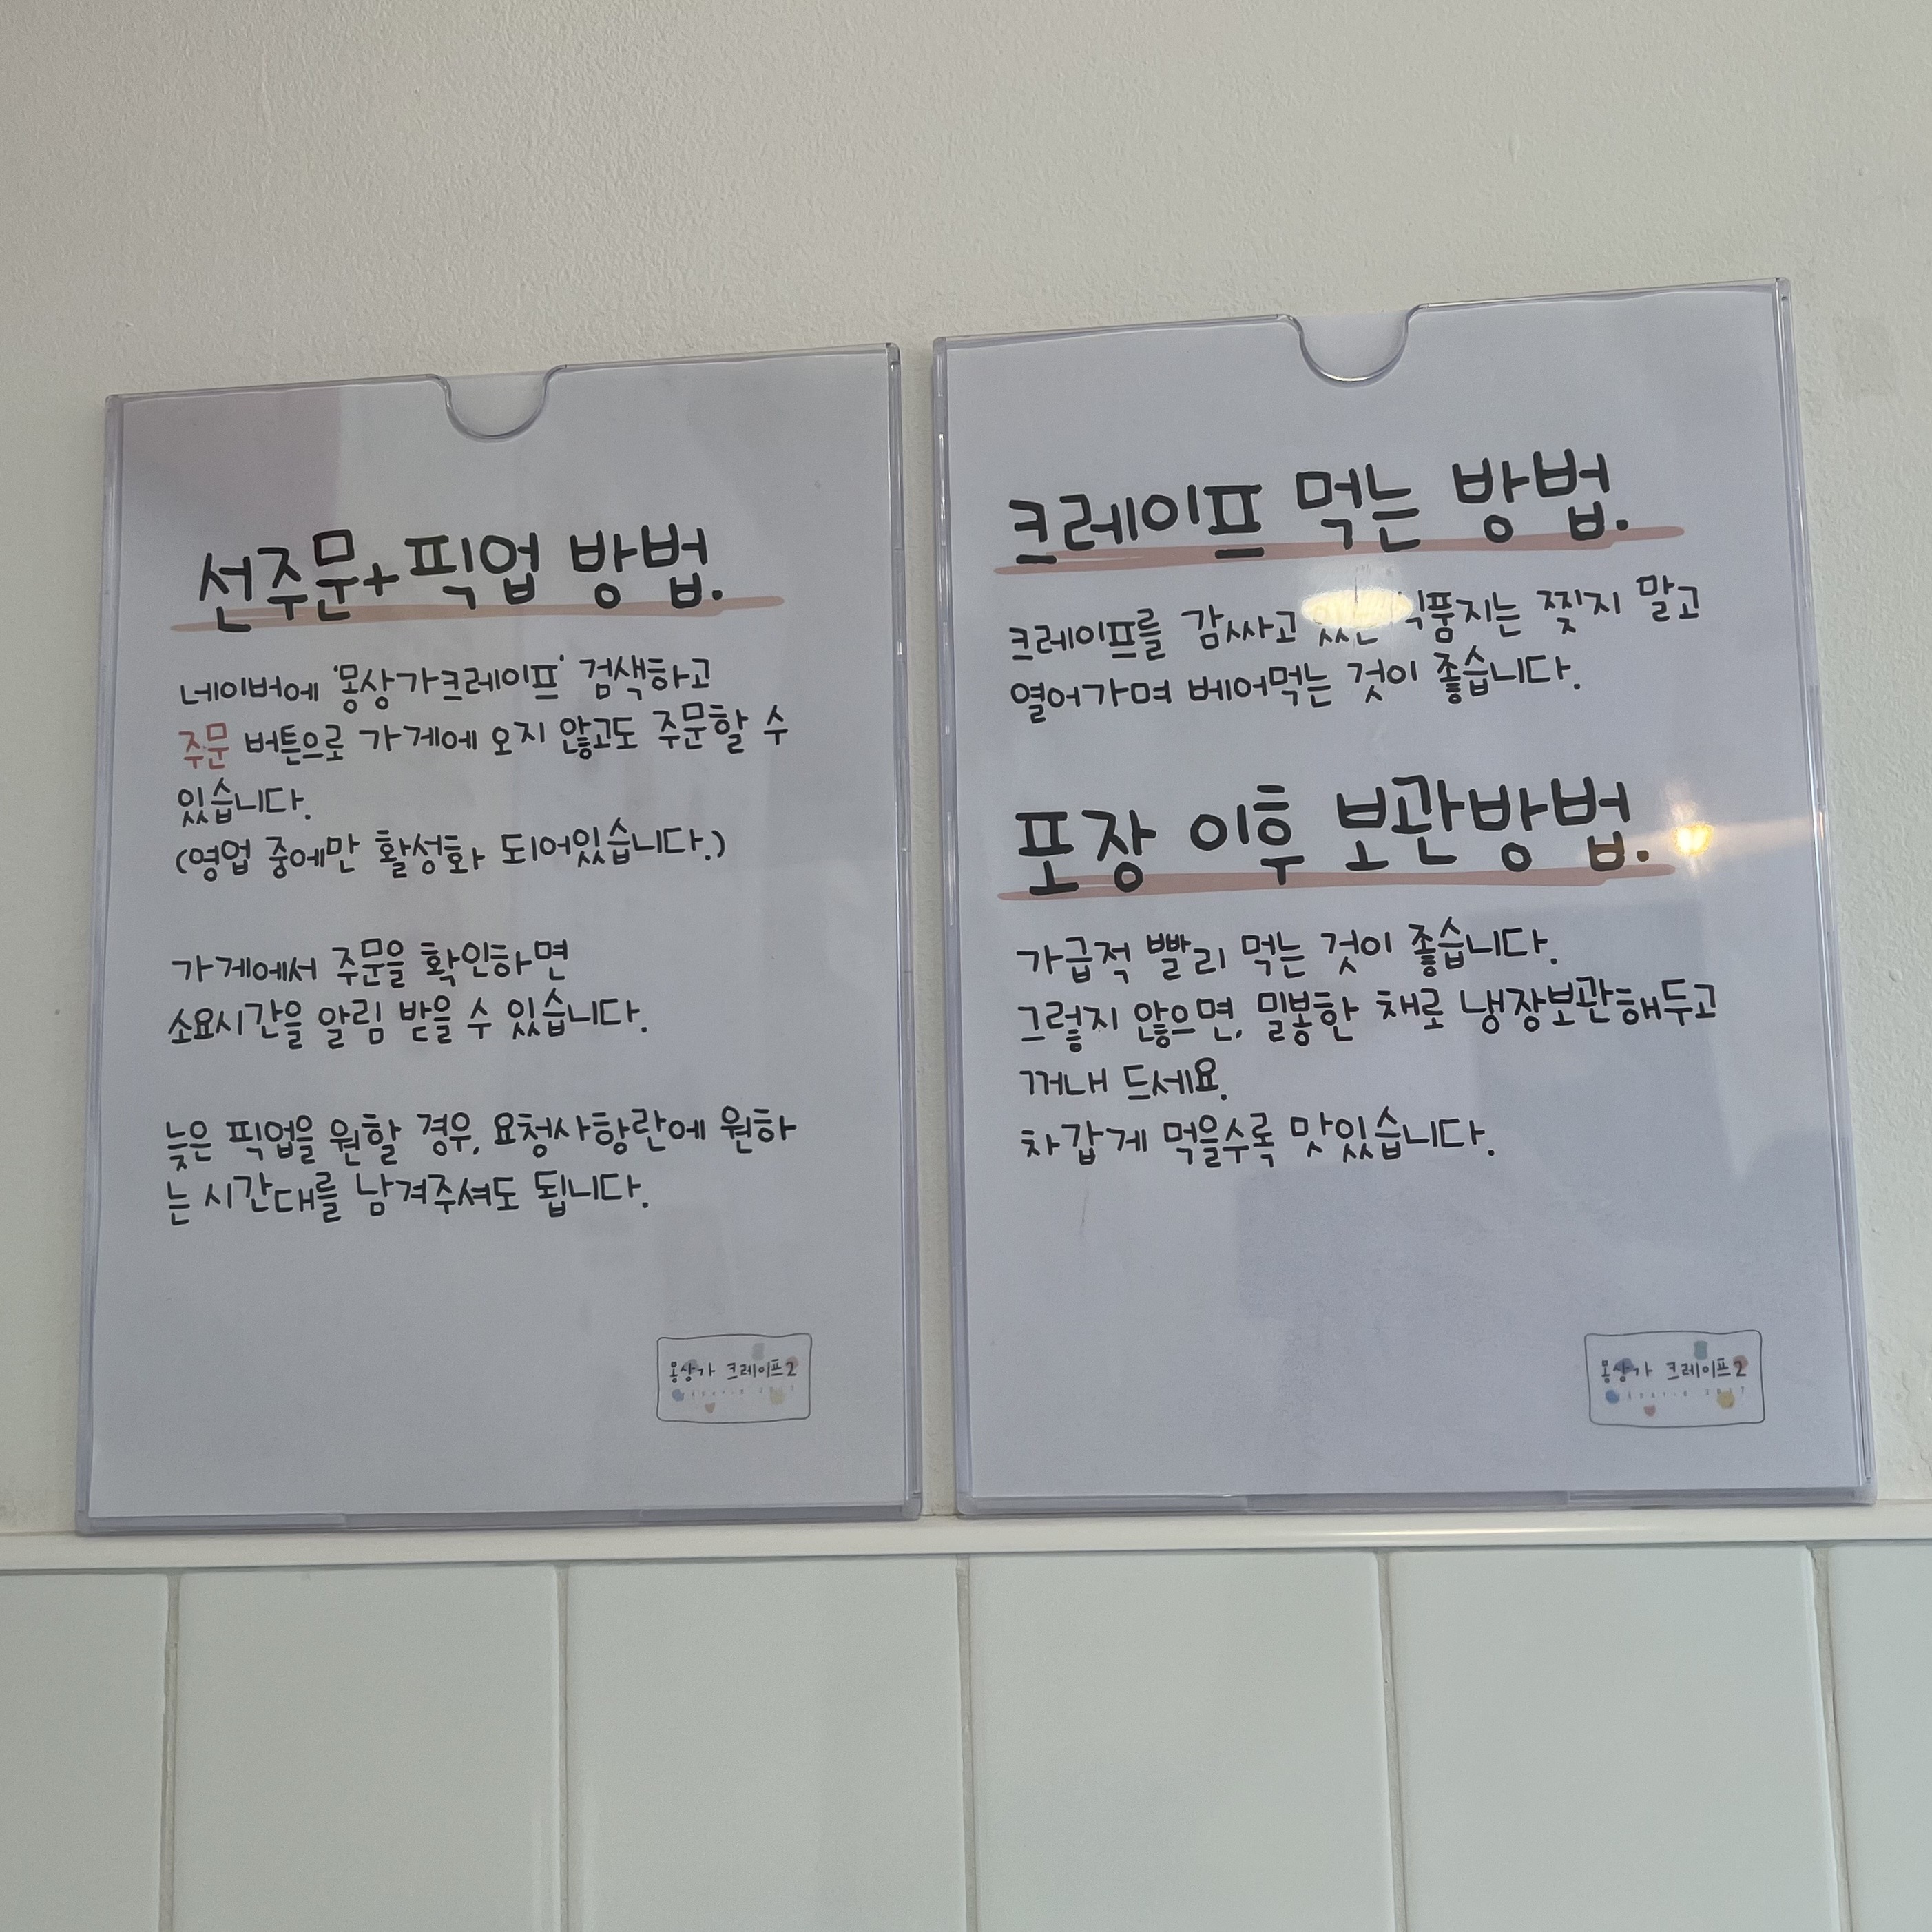 선주문+픽업 방법.
네이버에 '몽상가크레이프' 검색하고
주문 버튼으로 가게에 오지 않고도 주문할 수
있습니다.
(영업 중에만 활성화 되어있습니다.)
가게에서 주문을 확인하면
소요시간을 알림 받을 수 있습니다.
늦은 픽업을 원할 경우, 요청사항란에 원하
는 시간대를 남겨주셔도 됩니다.
몽상가 크레이프2
크레이프 먹는 방법.
크레이프를 감싸고 찢지 말고
열어가며 베어먹는 것이 좋습니다.
포장 이후 보관방법.
가급적 빨리 먹는 것이 좋습니다.
그렇지 않으면, 밀봉한 채로 냉장보관해두고
꺼내 드세요.
차갑게 먹을수록 맛있습니다.
몽상가 크레이프2